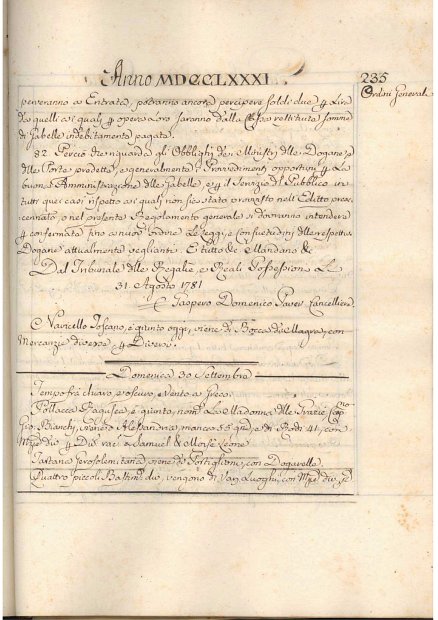 Anno MDCCLXXXI.
235
Ordini Generali
perveranno a Entrata, potranno ancora percipere soldi due p Lira
da quelli ai quali p opera loro saranno dalla Cassa restituite somme
di Gabelle indebitamente pagate.
82. Perciò che riguarda gli Obblighi dei Ministri delle Dogane, e
delle Porte predette, e generalmente i Provvedimenti opportuni p la
buona Amministrazione delle Gabelle, e p il Servizio del Pubblico in
tutti quei casi rispetto ai quali non sia stato provvisto nell'Editto preac-
cennato, o nel presente Regolamento generale si dovranno intendere
p confermate fino a nuovi Ordini le Leggi, e Consuetudini delle respettive
Dogane attualmente veglianti. E tutto &c. Mandano &c.
Dal Tribunale delle Regalie, e Reali Possessioni Li
31. Agosto 1781
Gaspero Domenico Paver Cancelliere
Navicello Toscano, è giunto oggi, viene di Bocca di Magra, con
Mercanzie Diverse p Diversi.
Domenica 30 Settembre
Tempo frà chiaro, e oscuro, Vento a Greco
Pollacca Ragusea, è giunto, nom. La Madonna delle Grazie Cap.no
Gio. Bianchi, viene di Alessandria, manca 55 gni, e di Rodi 41, con
p Samuel & Moisè Leone
Tartana Gerosolimitana, viene di Portiglioni, con Dogarelle
Quattro piccoli Bastim. vengono di Varj Luoghi, con